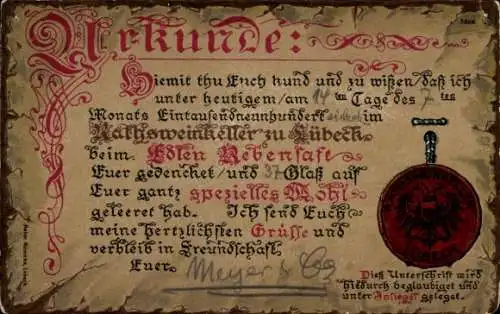 Urkunde:
Hiemit thu Euch kund und zu wißen/daß ich
unter heutigem/am 14 ten Tage des 7 ten
Monats Eintausendneunhundert im
Rathsweinkeller zu Lübeck
beim Edlen Rebensaft
Euer gedencket/und 37 Glaß auf
Euer gantz spezielles Wohl
geleeret hab. Ich send Euch
meine hertzlichsten Grüsse und
verbleib in Freundschaft
Euer Meyer & Co
Dieß Unterschrift wird
hiedurch beglaubiget und
unter Insiegel geleget.